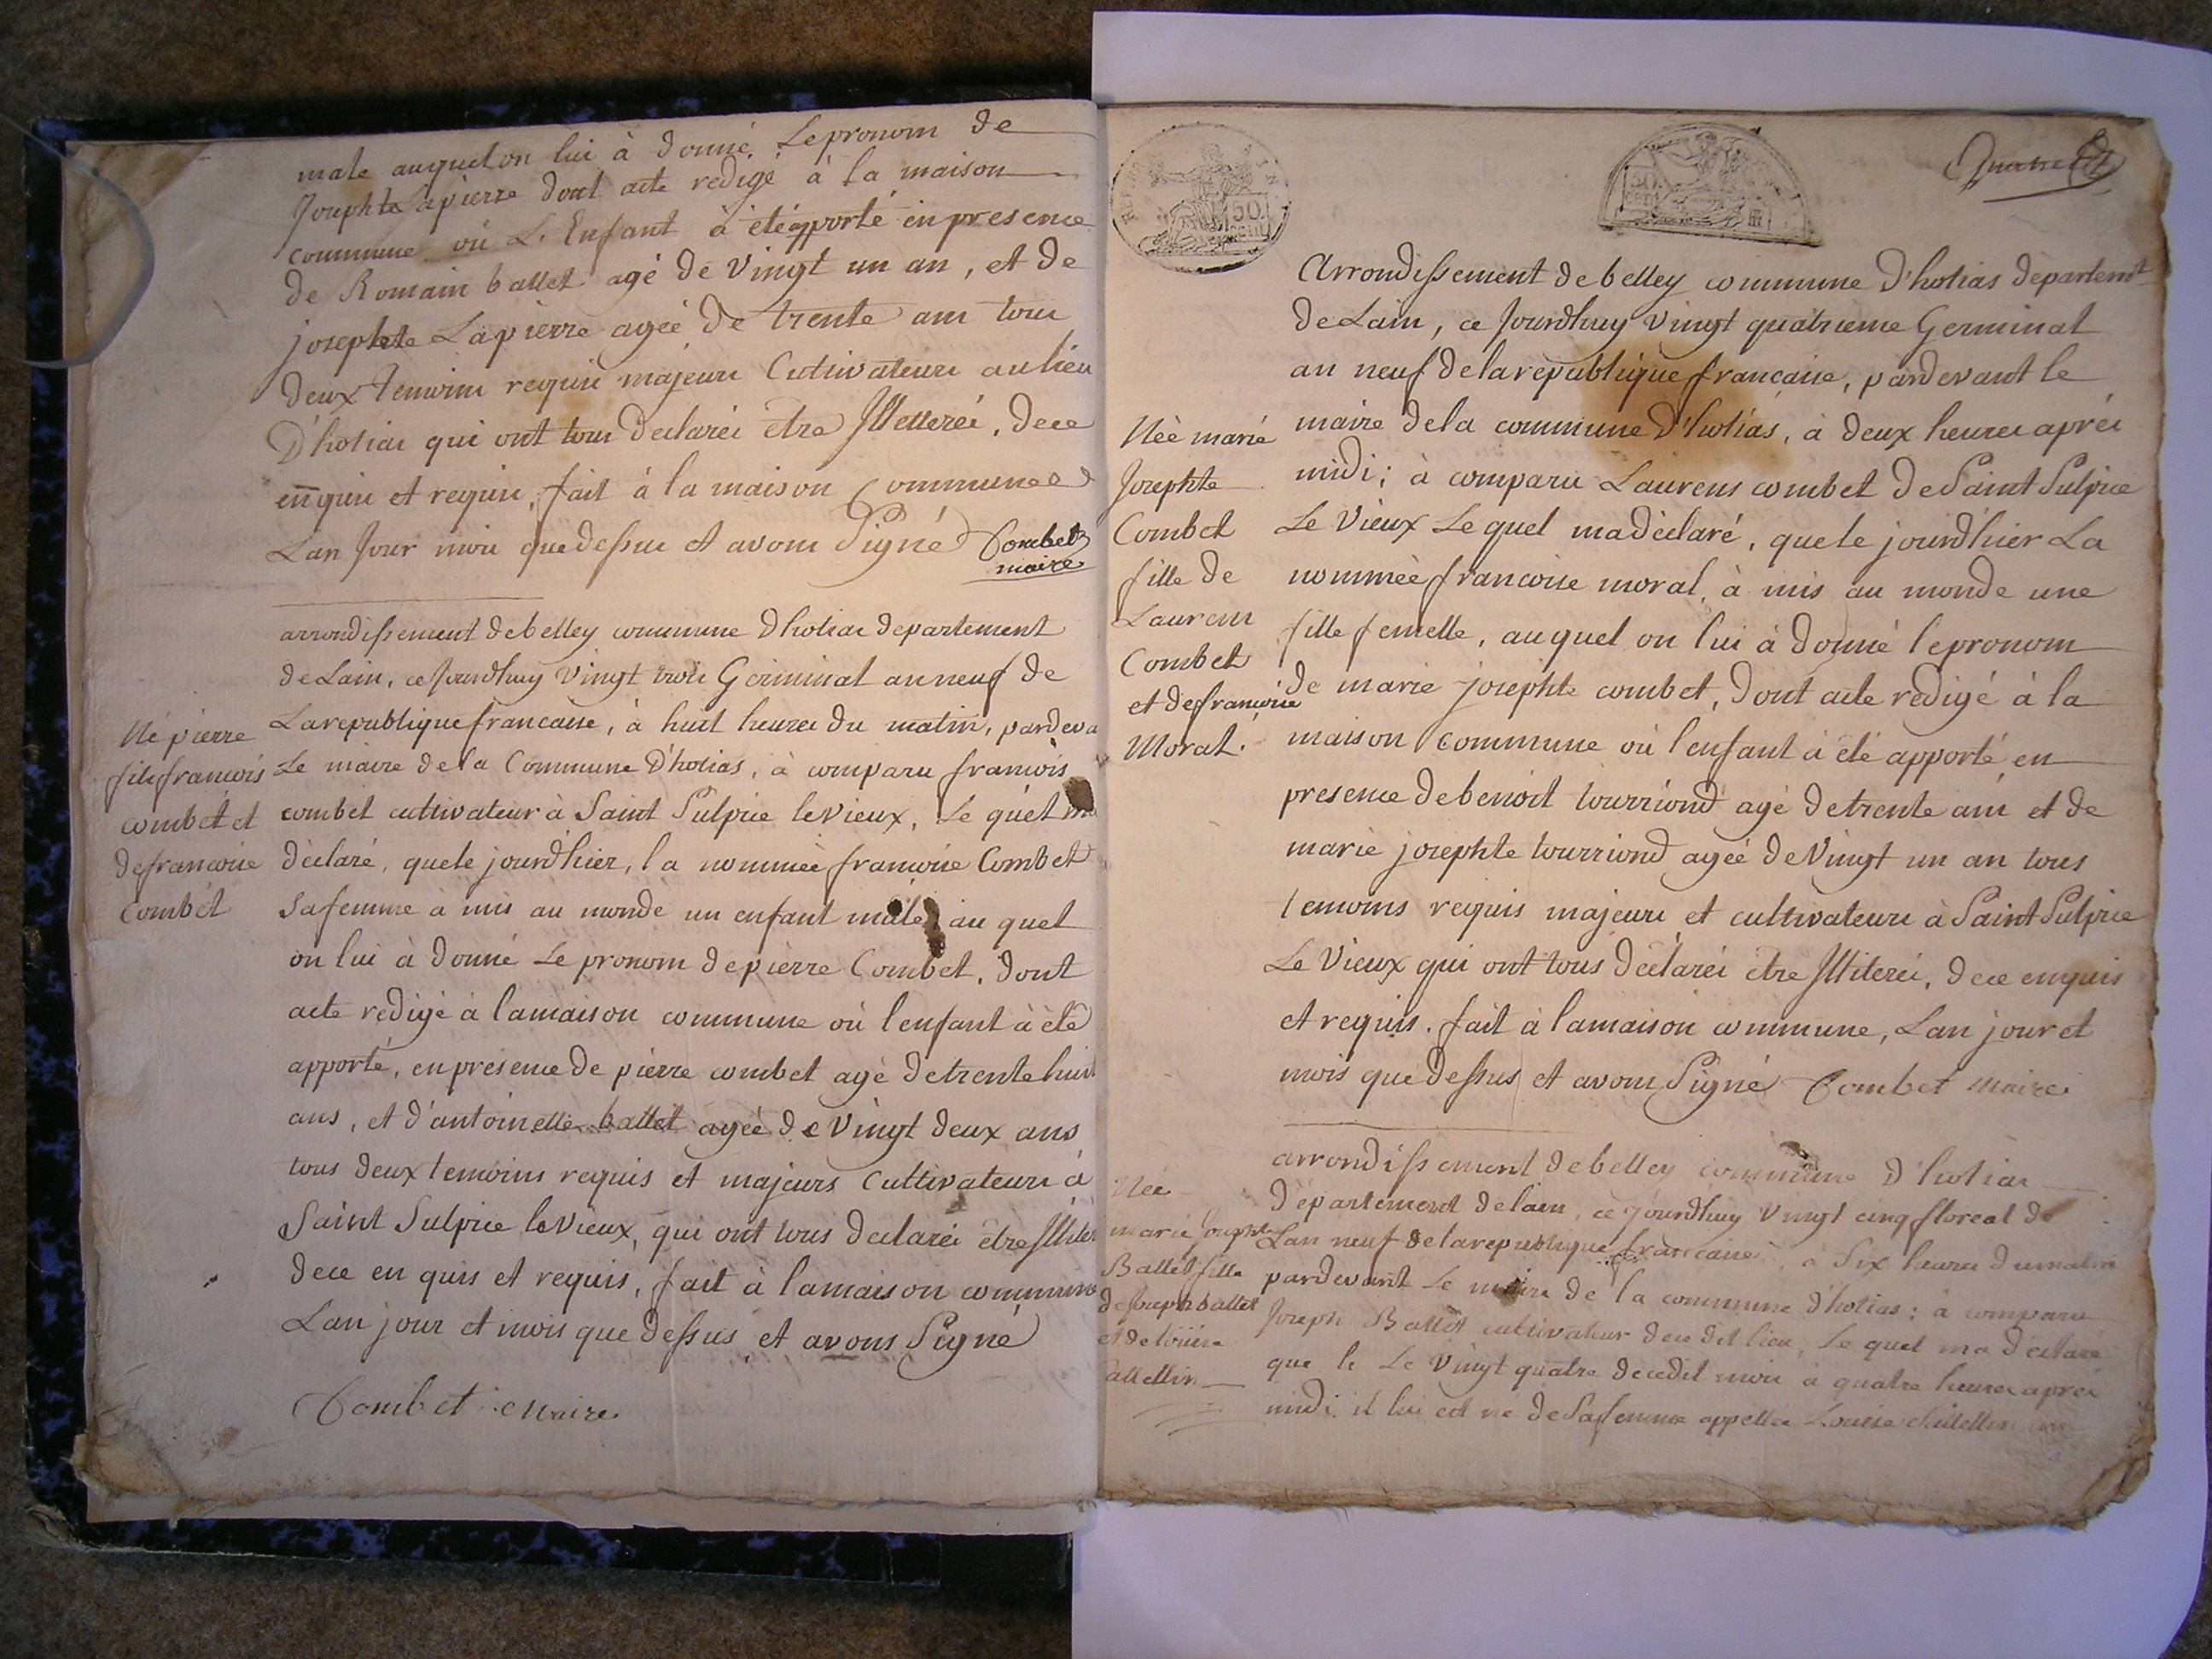 male auquel on lui à donné Le pronom de
Josephte Lapierre dont acte redigé à la maison
commune où L'Enfant à été apporté en presence
de Romain ballet agé de vingt un an, et de
josephte Lapierre ageé de trente ans tous
deux temoins requis majeurs Cultivateurs au lieu
D'hotias qui ont tous declarés etre Illetterés, de ce
enquis et requis, fait à la maison Commune
Lan Jour mois que dessus et avons Signé Combet
maire
arrondissement de belley commune Dhotias departement
de Lain, ce Jourdhuy vingt trois Germinal an neuf de
La republique francaise, à huit heures du matin, pardeva
Le maire de la Commune D'hotias, à comparu francois
combet cultivateur à Saint Sulpice le vieux, Le quel ma
déclaré, que le jourdhier, la nommée francoise Combet
Sa femme à mis au monde un enfant male au quel
on lui à donné Le pronom de pierre Combet, dont
acte redigé à la maison commune où l'enfant à été
apporté, en presence de pierre combet agé de trente huit
ans, et d'antoinette ballet ageé de vingt deux ans
tous deux temoins requis et majeurs Cultivateurs à
Saint Sulpice le vieux, qui ont tous declarés être
de ce en quis et requis, fait à la maison commune
Lan jour et mois que dessus et avons Signé
Combet maire
Né pierre
fils francois
combet et
de francoise
Combet
Quatre
50.
50
Arrondissement de belley commune D'hotias departemt
de Lain, ce Jourdhuy vingt quatrieme Germinal
an neuf de la republique francaise, pardevant le
maire de la commune D'hotias, à deux heures après
midi; à comparu Laurens combet de Saint Sulpice
Le Vieux Le quel ma déclaré, que le jourdhier La
nommée francoise moral, à mis au monde une
fille femelle, au quel on lui à donné le pronom
de marie josephte combet, dont acte redigé à la
maison commune où l'enfant à été apporté en
presence de benoit tourriond agé de trente ans et de
marie josephte tourriond ageé de vingt un an tous
temoins requis majeurs et cultivateurs à Saint Sulpice
Le Vieux qui ont tous déclarés être Illiterés, de ce enquis
et requis. fait à la maison commune, Lan jour et
mois que dessus et avons Signé Combet maire
Née marie
Josephte
Combet
fille de
Laurens
Combet
et de francoise
Moral.
arrondissement de belley commune d'hotias
département de lain, ce jourdhuy vingt cinq floreal de
Lan neuf de la republique francaise, à Six heures du matin
pardevant Le maire de la commune d'hotias; à comparu
Joseph Ballet cultivateur de ce dit lieu, Le quel ma déclaré
que le Le vingt quatre de ce dit mois à quatre heures après
midi, il lui est né de Sa femme appellée Louise
Née
marie Josephte
Ballet fille
de Joseph ballet
et de louise